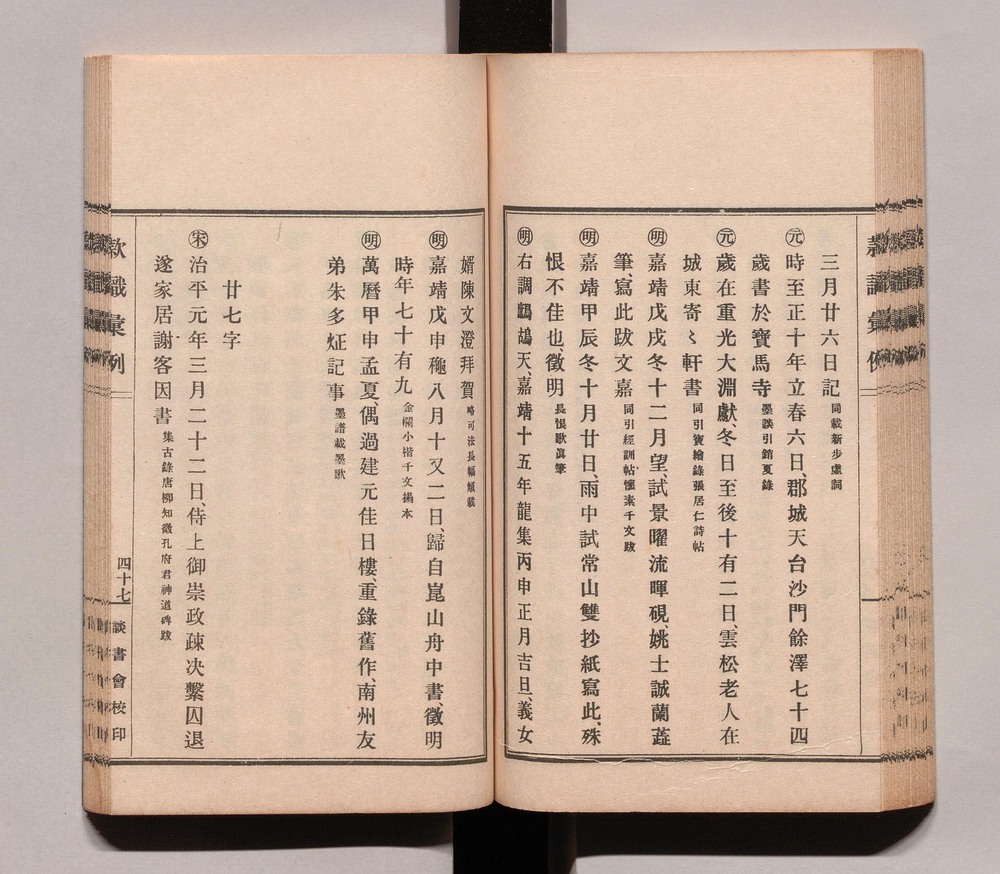 三月廿六日記 同載新步虛詞
㊎元 時至正十年立春六日、郡城天台沙門餘澤七十四
歲書於寶馬寺 墨談引銷夏錄
元 歲在重光大淵獻、冬日至後十有二日、雲松老人在
城東寄〻軒書 同引寶繪錄張居仁詩帖
明 嘉靖戊戌冬十二月望、試景曜流暉硯、姚士誠蘭蕋
筆、寫此跋文嘉 同引經訓帖懷素千文跋
明 嘉靖甲辰冬十月廿日、雨中試常山雙抄紙寫此、殊
恨不佳也、徵明 長恨歌眞筆
明 右調鷓鴣天、嘉靖十五年龍集丙申正月吉旦、義女
婿陳文澄拜賀 略可法長幅類載
明 嘉靖戊申穐八月十又二日、歸自崑山舟中書、徵明
時年七十有九 金闌小揩千文搨本
明 萬曆甲申孟夏、偶過建元佳日樓、重錄舊作、南州友
弟朱多炡記事 墨譜載墨歌
廿七字
宋 治平元年三月二十二日侍上御崇政疎决繫囚退
遂家居謝客因書 集古錄唐柳知微孔府君神道碑跋
款識彙例
四十七
談書會校印